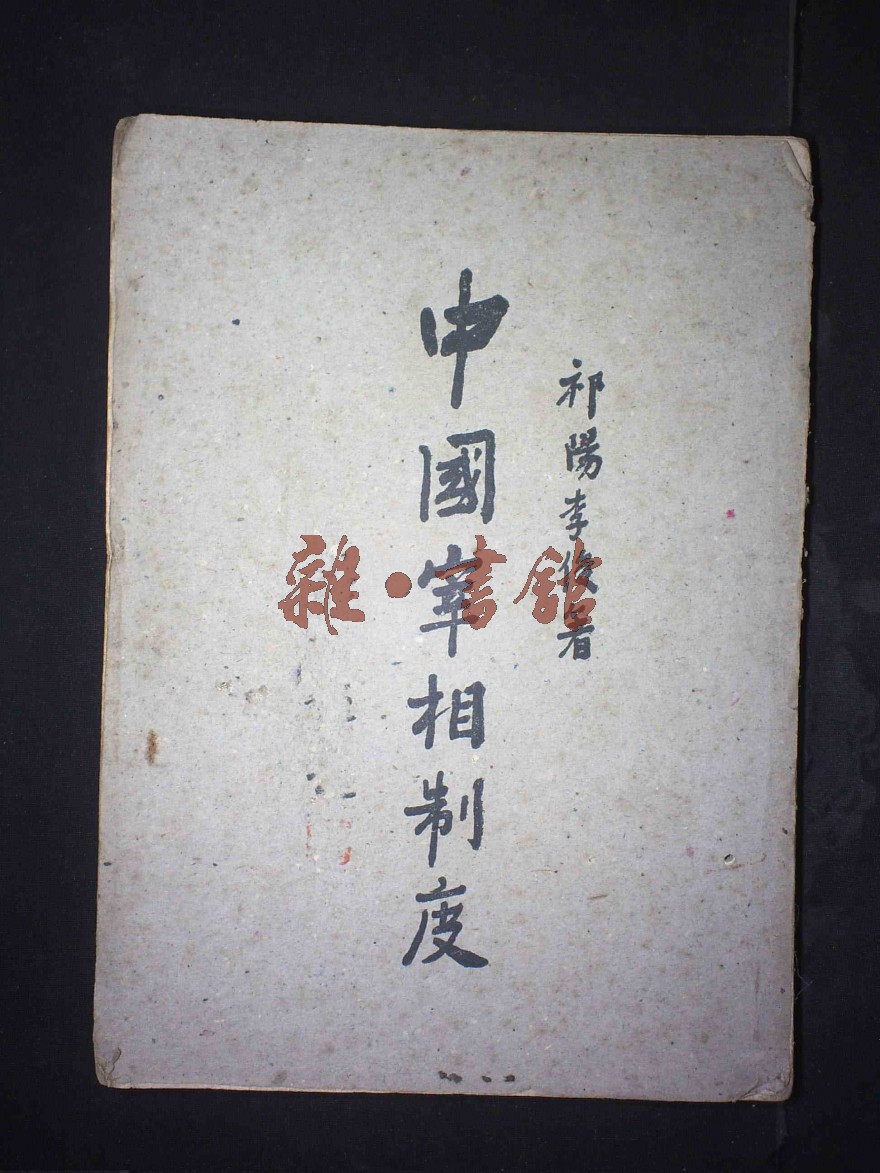 祁陽李俊著
中國宰相制度
雜·書舘